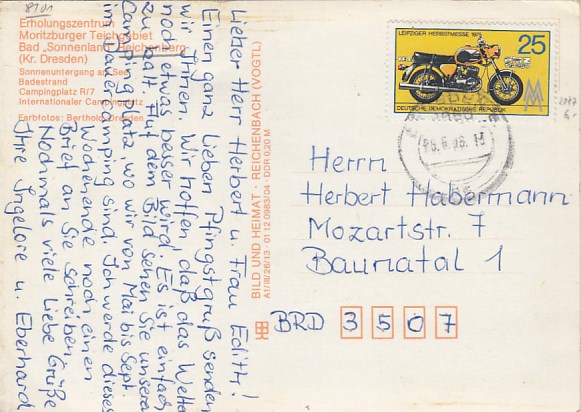 8101
Erholungszentrum
Moritzburger Teichgebiet
Bad „Sonnenland" Reichenberg
(Kr. Dresden)
Sonnenuntergang am See
Badestrand
Campingplatz R/7
Internationaler Campingplatz
Farbfotos: Berthold, Dresden
Lieber Herr Herbert u. Frau Edith!
Einen ganz lieben Pfingstgruß senden
wir Ihnen. Wir hoffen, daß das Wetter
noch etwas besser wird. Es ist einfach
zu kalt. Auf dem Bild sehen Sie unseren
Campingplatz, wo wir von Mai bis Sept.
im Dauercamping sind. Ich werde dieses
Wochenende noch einen
Brief an Sie schreiben.
Nochmals viele Liebe Grüße
Ihre Ingelore u. Eberhard
BILD UND HEIMAT · REICHENBACH (VOGTL)
A1/III/26/13 · 01 12 0983/04 · DDR 0,20 M
LEIPZIGER HERBSTMESSE 1975
25
MM
DEUTSCHE DEMOKRATISCHE REPUBLIK
Herrn
Herbert Habermann
Mozartstr. 7
Baunatal 1
BRD 3507